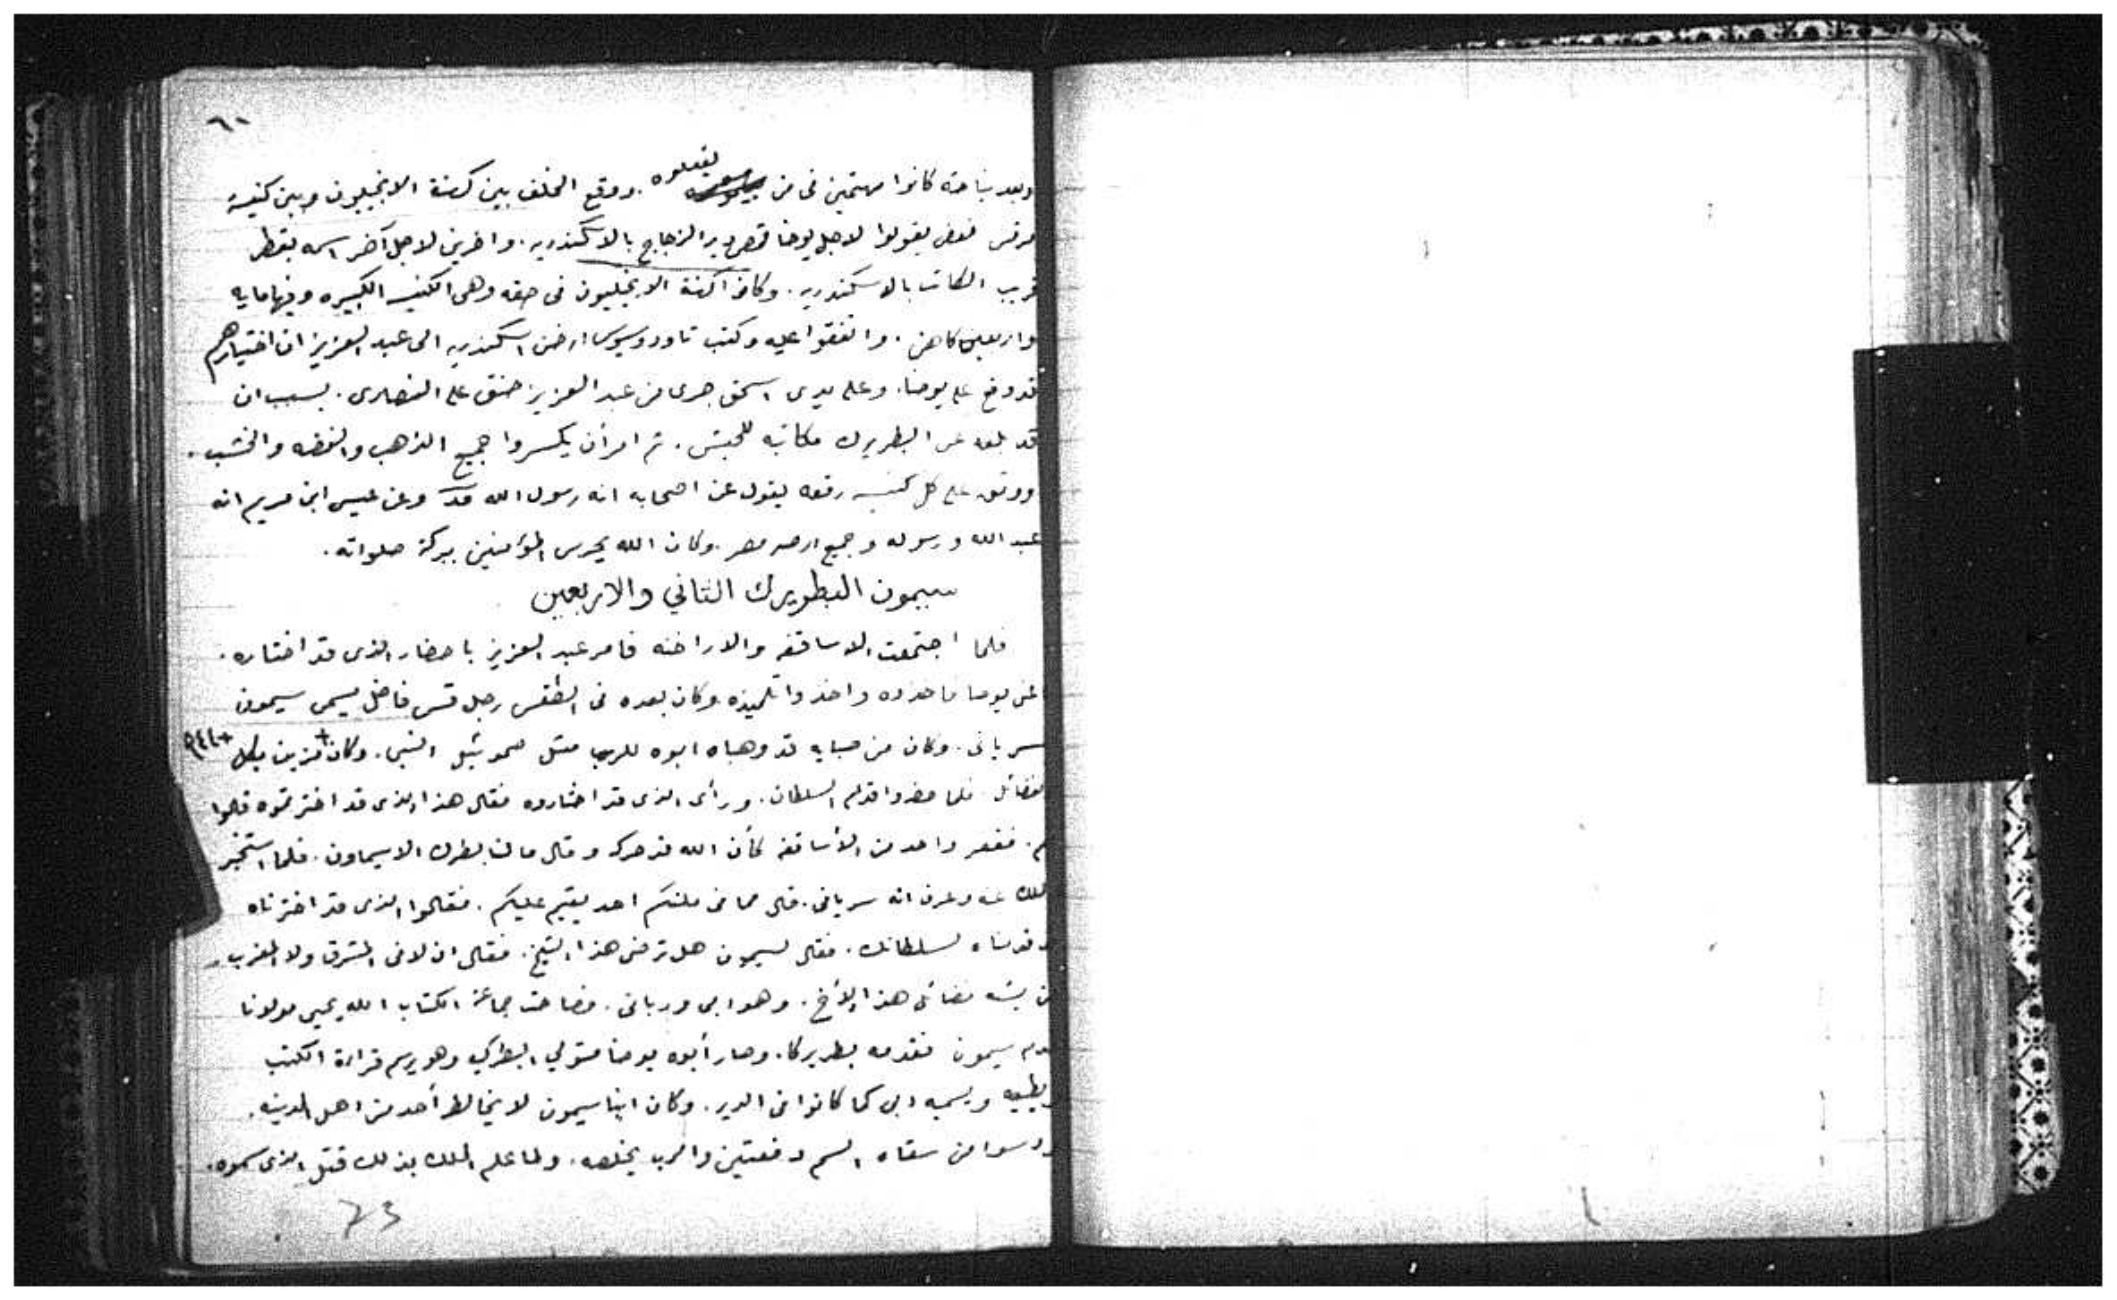 ٦٠
وبعد نياحته كانوا مهتمين فى من يفعلوه . ووقع الخلف بين كهنة الانجيليون وبين كنيسة
مرقس فبعض يقولوا لاجل يوحنا قمص دير الزجاج بالاسكندريه . واخرين لاجل آخر اسمه بقطر
قريب الكاتب بالاسكندريه . وكانوا كهنة الانجيليون فى حقه وهى الكنيسه الكبيره وفيها مايه
واربعين كاهن . واتفقوا عليه وكتب تاودروسيوس ارخن اسكندريه الى عبد العزيز ان اختيارهم
قد وقع على يوحنا . وعلى يدى اسحق جرى من عبد العزيز حنق على النصارى . بسبب ان
قد بلغه عن البطريرك مكاتبه للحبش . ثم امر أن يكسروا جميع الذهب والفضه والخشب .
ووقعـ على كل كنيسه رقعه يقول عن اصحابه انه رسول الله وعن عيسى ابن مريم انه
عبد الله ورسوله وجميع ارض مصر . وكان الله يحرس المؤمنين ببركة صلواته .
سيمون البطريرك الثاني والاربعين
فلما اجتمعت الاساقفه والاراخنه فامر عبد العزيز باحضار الذى قد اختاره .
اعنى يوحنا فاخذوه واخذوا تلميذه وكان بعده فى الطقس رجل قس فاضل يسمى سيمون
سريانى . وكان من صبايه قد وهباه ابوه للرب مثل صموئيل النبى . وكان + مزين بكل
الفضائل . فلما حضروا قدام السلطان . ورأى الذى قد اختاروه فقال هذا الذى قد اخترتموه قالوا
نعم . فقفر واحد من الأساقفه كأن الله قد حركه وقال مالنا بطرك الا سيمون . فلما استخبر
الملك عنه وعرف انه سريانى . قال مما فى ملتكم احد يقيم عليكم . فقالوا الذى قد اخترناه
وقدمناه لسلطانك . فقال لسيمون هل ترضى هذا الشيخ . فقال ان لا فى المشرق ولا المغرب
من يشبه فضائل هذا الأخ . وهو ابى وربانى . فصاحت جماعة الكتاب الله يحيى مولانا
قدم سيمون فقدمه بطريركا . وصار أبوه يوحنا متولى البطركيه وهو يرسم قراءة الكتب
ويطيعه ويسميه ابى كما كانوا فى الدير . وكان ابنا سيمون لا يخالط أحد من اهل المدينه .
ودسوا من سقاه السم دفعتين والرب يخلصه . ولما علم الملك بذلك قتل الذى سموه .